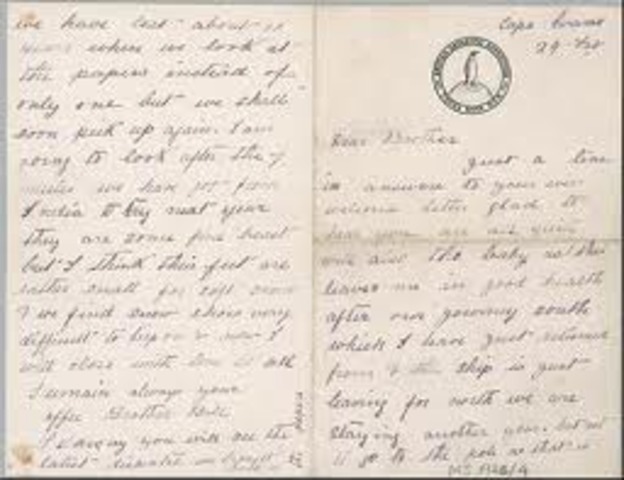 Cape Evans
Dear Brother
just a line
in answer to your ever
welcome letter glad to
hear you are all quite
well also the baby
leaves me in good health
after our journey south
which I have just returned
from & the ship is just
leaving for north we are
staying another year but
to go to the pole
we have lost about
years when we look at
the papers instead of
only one but we shall
soon pick up again. I am
going to look after the
mules we have got from
India to try next year
they are some fine beast
but I think their feet are
rather small for soft snow
& we find snow shoes very
difficult to keep on & now I
will close with love to all
I remain always your
affec Brother
I daresay you will see the
latest